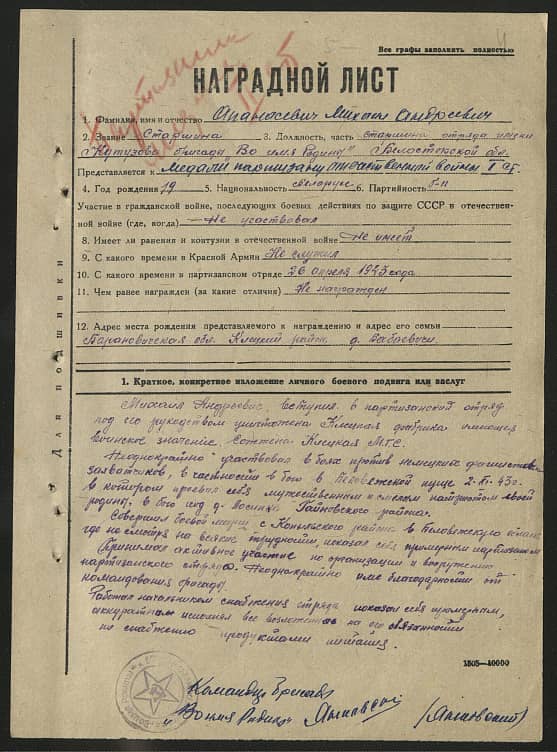 4
Все графы заполнить полностью
НАГРАДНОЙ ЛИСТ
1. Фамилия, имя и отчество Апанасевич Михаил Андреевич
2. Звание Старшина 3. Должность, часть старшина отряда имени
"Кутузова бригада Во имя Родины" Белостокской обл.
Представляется к Медали партизану отечественной войны I ст.
4. Год рождения 19 5. Национальность белорус 6. Партийность б-п
Участие в гражданской войне, последующих боевых действиях по защите СССР в отечествен-
ной войне (где, когда) Не участвовал
8. Имеет ли ранения и контузии в отечественной войне Не имеет
9. С какого времени в Красной Армии Не служил
10. С какого времени в партизанском отряде 26 апреля 1943 года
11. Чем ранее награжден (за какие отличия) Не награжден
12. Адрес места рождения представляемого к награждению и адрес его семьи
Барановичская обл. Клецкий район д.
Для подшивки
1. Краткое, конкретное изложение личного боевого подвига или заслуг
Михаил Андреевич вступил в партизанский отряд
под его руководством уничтожена Клецкая имеющая
воинское значение. Сожжена Клецкая МТС.
Неоднократно участвовал в боях против немецких
захватчиков, в частности в бою в Беловежской пуще 43г.
в котором проявил себя мужественным и смелым патриотом своей
родины, в бою под д. Гайновского района.
Совершил боевой марш с Копыльского района в Беловежскую
где не смотря на всякие трудности, показал себя примерным партизаном
Принимал активное участие по организации и вооружению
партизанского отряда. Неоднократно имел благодарности от
командования бригады.
Работая начальником снабжения отряда показал себя
аккуратным исполнял все возложенные на его обязанности
по снабжению продуктами питания.
1505—10000
Командир бригады
"Во имя Родины" (Янковский)